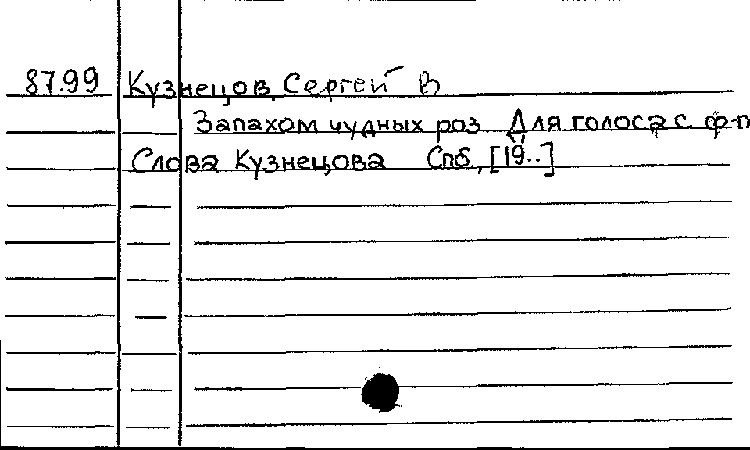 87.99 Кузнецов, Сергей В
Запахом чудных роз Для голоса с ф-п
Слова Кузнецова Спб, [19..]